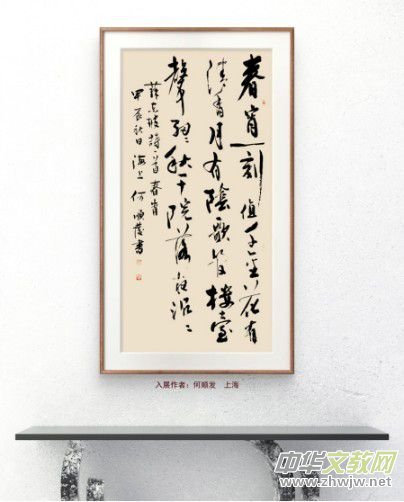 春宵一刻值千金花有
清香月有陰歌管樓臺
聲細〻秋千院落夜沉〻
蘇東坡詩一首春宵
甲辰秋日海上何順發書
入展作者：何顺发 上海
中华文教网
www.zhwjw.net